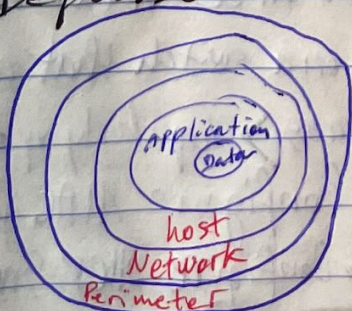 Application
Data
host
Network
Perimeter